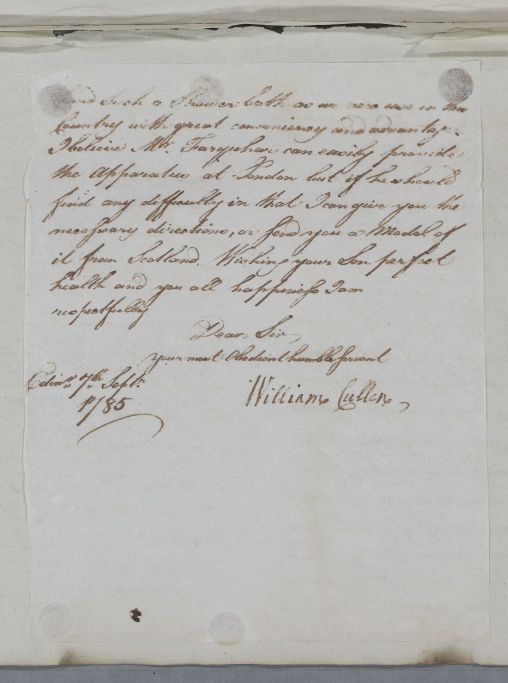 and Such a Shower bath as we now use in this
Country with great conveniency and advantage.
I believe Mr. Farquhar can easily provide
the Apparatus at London but if he should
find any difficulty in that I can give you the
necessary directions, or send you a Model of
it from Scotland. Wishing your Son perfect
health and you all happiness I am
respectfully
Dear Sir
your most Obedient humble servant
William Cullen
Edinr. 7th Septr.
1785